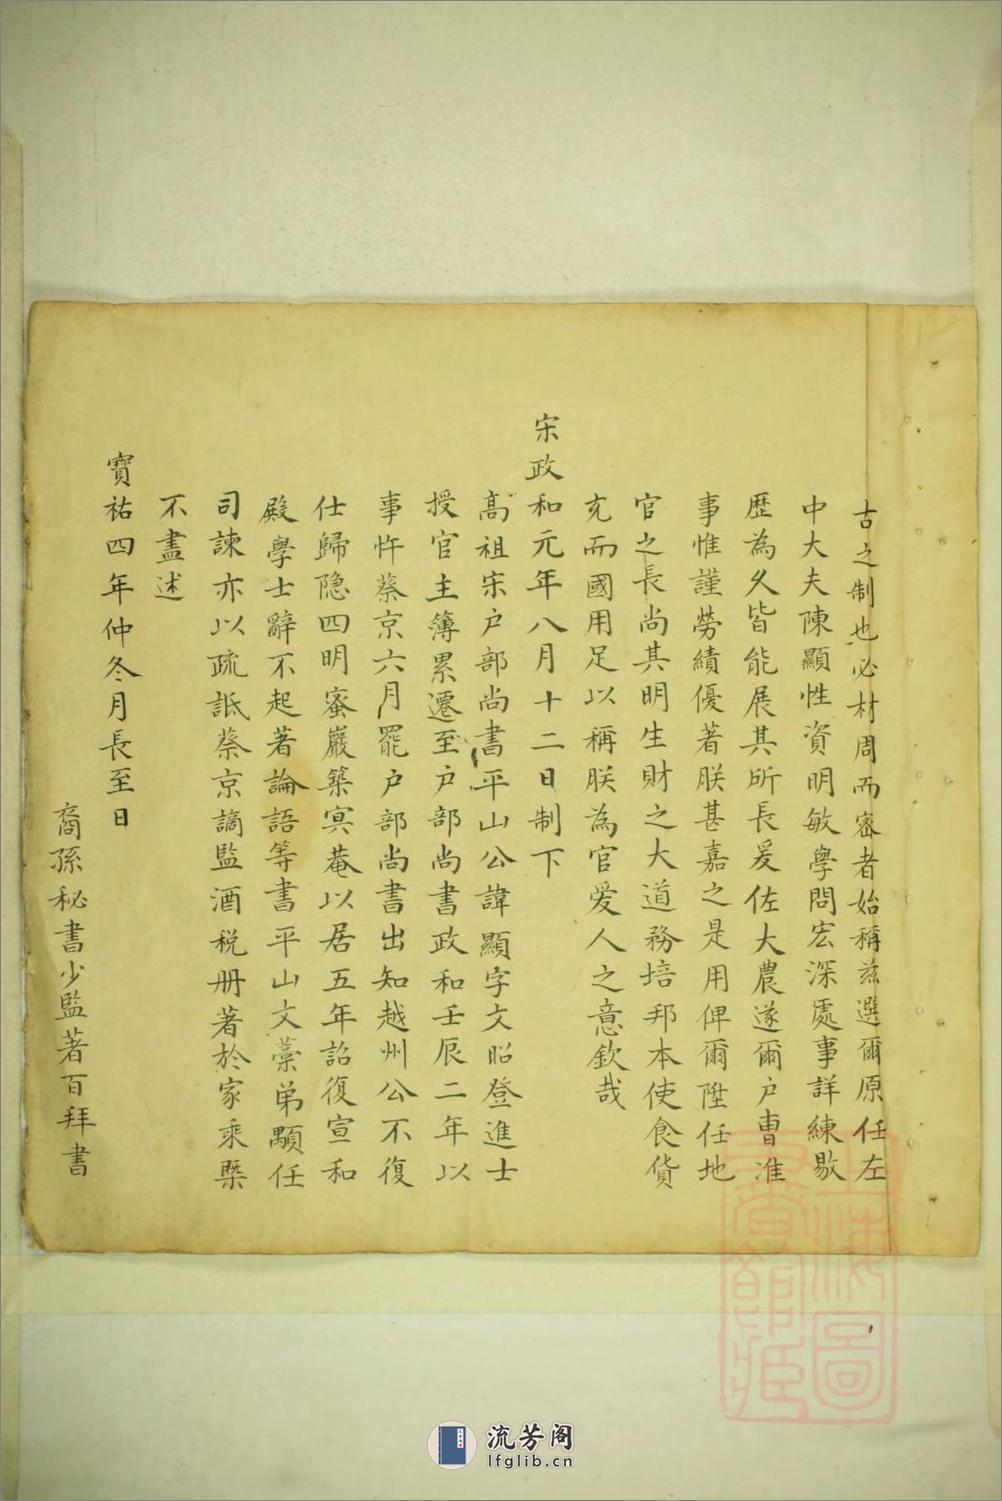 古之制也必材周而密者始稱茲選爾原任左
中大夫陳顯性資明敏學問宏深處事詳練敭
歷為久皆能展其所長爰佐大農遂爾户曹淮
事惟謹勞績優著朕甚嘉之是用俾爾陞任地
官之長尚其明生財之大道務培邦本使食貨
充而國用足以稱朕為官爱人之意欽哉
宋政和元年八月十二日制下
高祖宋户部尚書平山公諱顯字文昭登進士
授官主簿累遷至户部尚書政和壬辰二年以
事忤蔡京六月罷户部尚書出知越州公不復
仕歸隐四明蜜巖築冥菴以居五年詔復宣和
殿學士辭不起著論語等書平山文藁弟顒任
司諫亦以疏詆蔡京謫監酒税册著於家乘槩
不盡述
寳祐四年仲冬月長至日
裔孫秘書少監著百拜書
上海圖
書館藏
流芳阁
lfglib.cn